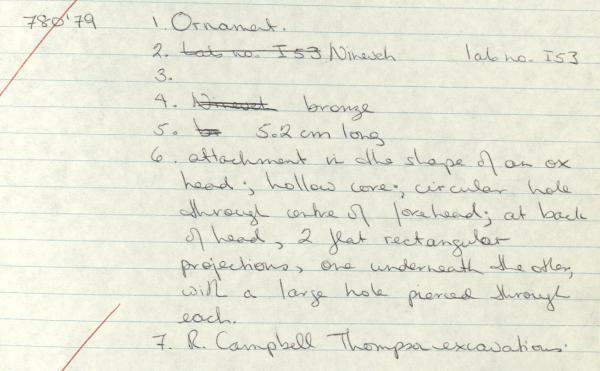 780'79 1. Ornament.
2. Lab no. I53 Nineveh lab no. I53
3.
4. Ninevet bronze
5. 5.2 cm long
6. attachment in the shape of an ox
head; hollow core; circular hole
through centre of forehead; at back
of head, 2 flat rectangular
projections, one underneath the other,
with a large hole pierced through
each.
7. R. Campbell Thompson excavations.